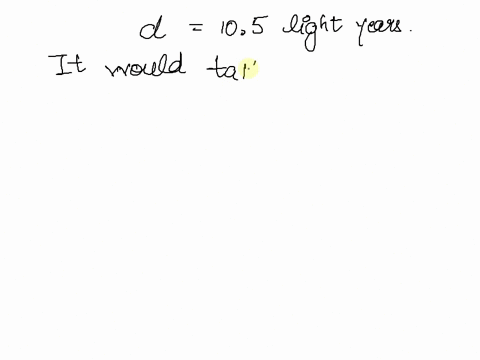 d = 10.5 light years.
It would